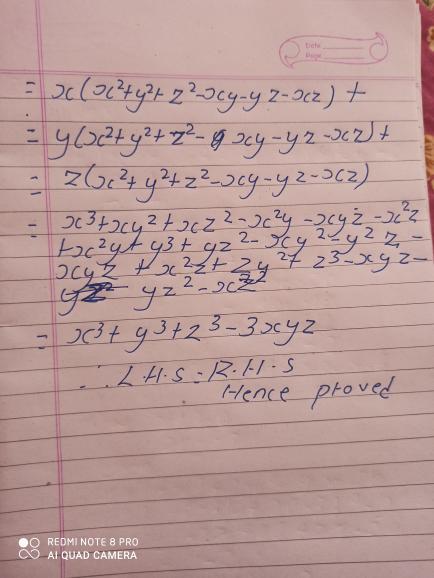 Date
Page
= x(x²+y²+z²-xy-yz-xz)+
= y(x²+y²+z²-xy-yz-xz)+
= z(x²+y²+z²-xy-yz-xz)
= x³+xy²+xz²-x²y-xyz-x²z
+x²y+y³+yz²-xy²-y²z-
xyz+x²z+zy²+z³-xyz-
yz²-xz²
= x³+y³+z³-3xyz
∴ L.H.S=R.H.S
Hence proved
REDMI NOTE 8 PRO
AI QUAD CAMERA